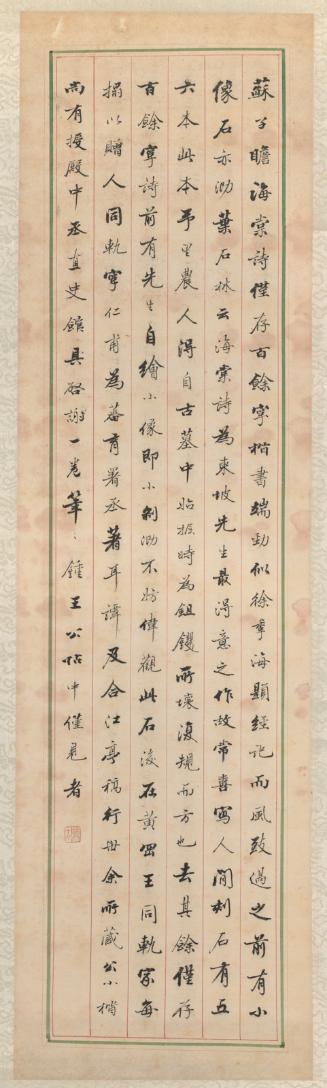 蘇子瞻海棠詩僅存百餘字楷書端勁似徐季海題經訖而風致過之前有小
像石亦泐葉石林云海棠詩為東坡先生最得意之作故常喜寫人間刻石有五
六本此本平望農人得自古墓中始掘時為鉏钁所壞復規而方也去其餘僅存
百餘字詩前有先生自繪小像即小剝泐不妨偉觀此石後在黃岡王同軌家每
搨以贈人同軌字仁甫為蕃育署丞著耳譚及合江亭稿行世余所藏公小楷
尚有授殿中丞直史館具啓謝一卷筆筆鍾王公帖中僅見者